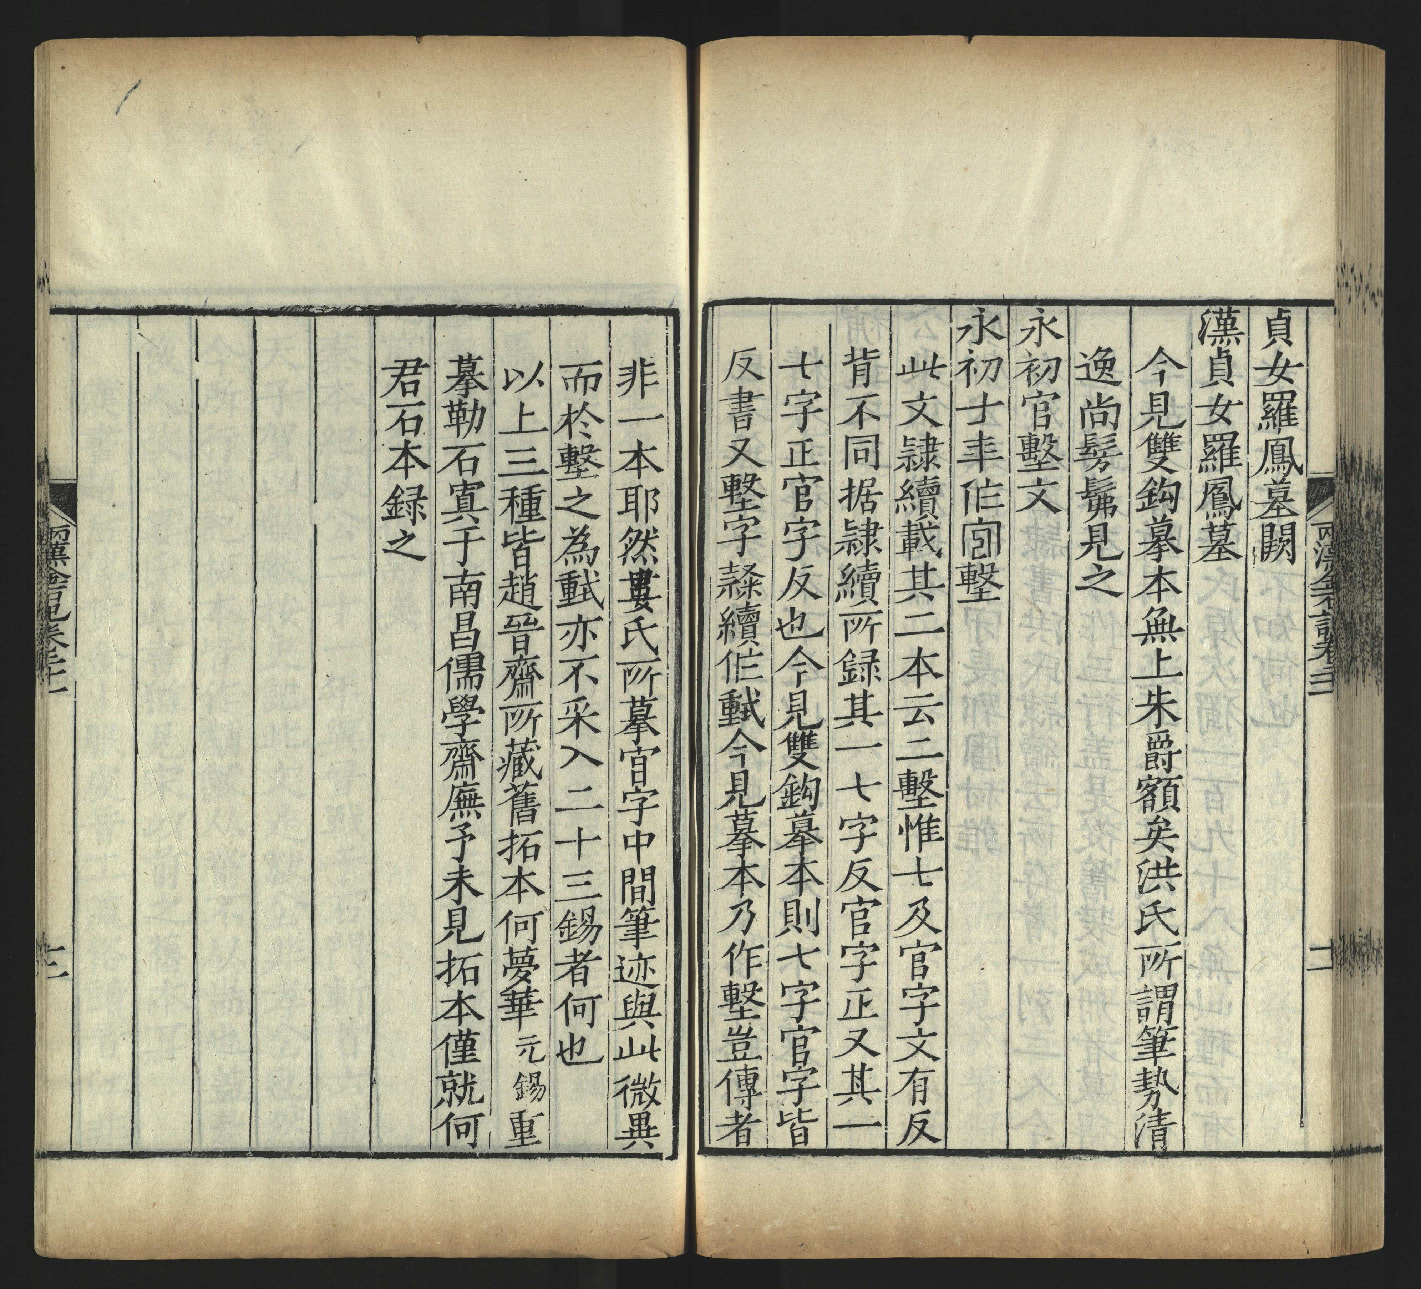 貞女羅鳳墓闕
漢貞女羅鳳墓
今見雙鈎摹本無上朱爵額矣洪氏所謂筆勢清
逸尚髣髴見之
永初官墼文
永初士秊作官墼
此文隷續載其二本云二墼惟七及官字文有反
背不同据隷續所録其一七字反官字正又其一
七字正官字反也今見雙鈎摹本則七字官字皆
反書又墼字隷續作㽎今見摹本乃作墼豈傳者
非一本耶然婁氏所摹官字中間筆迹與此微異
而於墼之為㽎亦不采入二十三錫者何也
以上三種皆趙晉齋所藏舊拓本何夢華元錫重
摹勒石寘于南昌儒學齋廡予未見拓本僅就何
君石本録之
兩漢金石記卷十二
十二